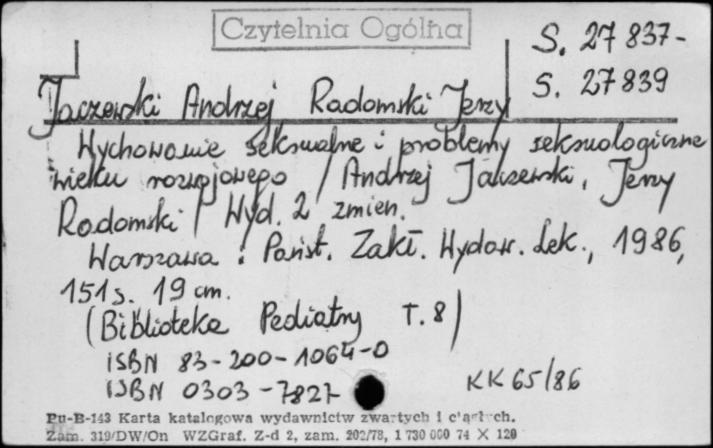 Czytelnia Ogólna
S. 27 837-
S. 27 839
Jaczewski Andrzej Radomski Jerzy
Wychowanie seksualne i problemy seksuologiczne
wieku rozwojowego / Andrzej Jaczewski, Jerzy
Radomski / Wyd. 2 zmien.
Warszawa : Państ. Zakł. Wydaw. Lek., 1986,
151 s. 19 cm.
(Biblioteka Pediatry T. 8)
ISBN 83-200-1064-0
ISBN 0303-7827
KK 65/86
Pu-B-143 Karta katalogowa wydawnictw zwartych i ciągłych.
Zam. 319/DW/On WZGraf. Z-d 2, zam. 202/78, 1 730 000 74 X 120